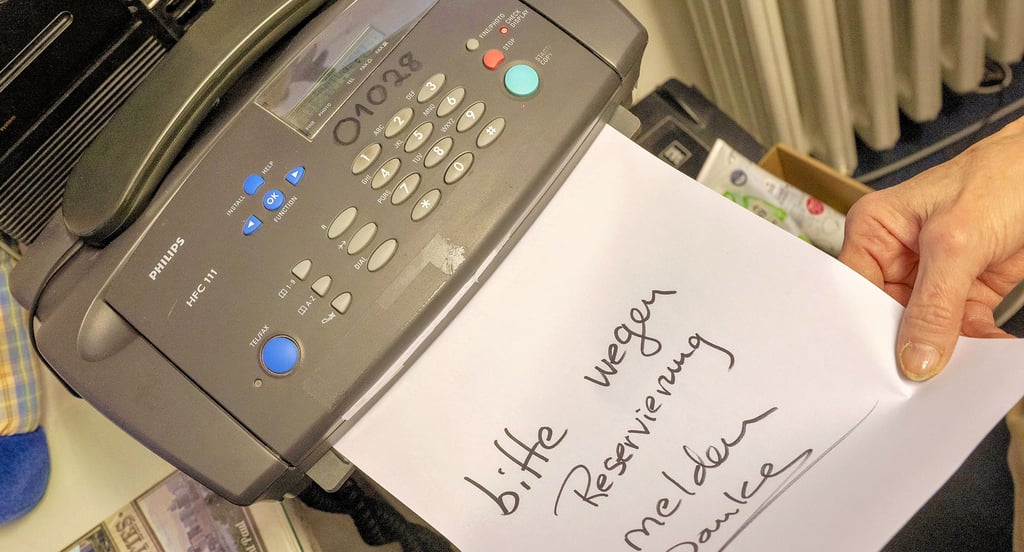 FINE/PHOTO
CHECK DISPLAY
STOP
START/COPY
01028
ABC 2
DEF 3
1
GHI 4
JKL 5
MNO 6
PQRS 7
TUV 8
WXYZ 9
*
0
#
HELP
INSTALL
OK
FUNCTION
R
DIAL
PHILIPS
HFC 111
1-9
A-Z
TEL/FAX
bitte wegen
Reservierung
melden
Danke